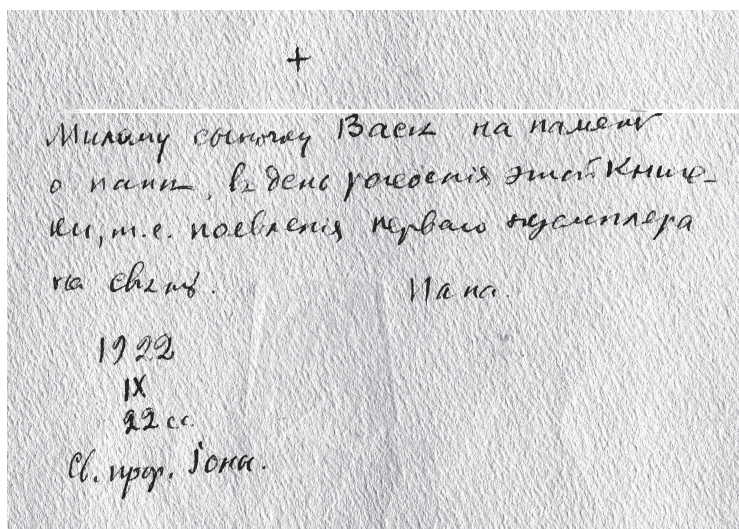 +
Милому сыночку Васѣ на память
о папѣ, въ день рожденія этой Книж-
ки, т.е. появленія перваго экземпляра
на свѣтъ. Папа.
1922
IX
22 с.с.
Св. прор. Іоны.